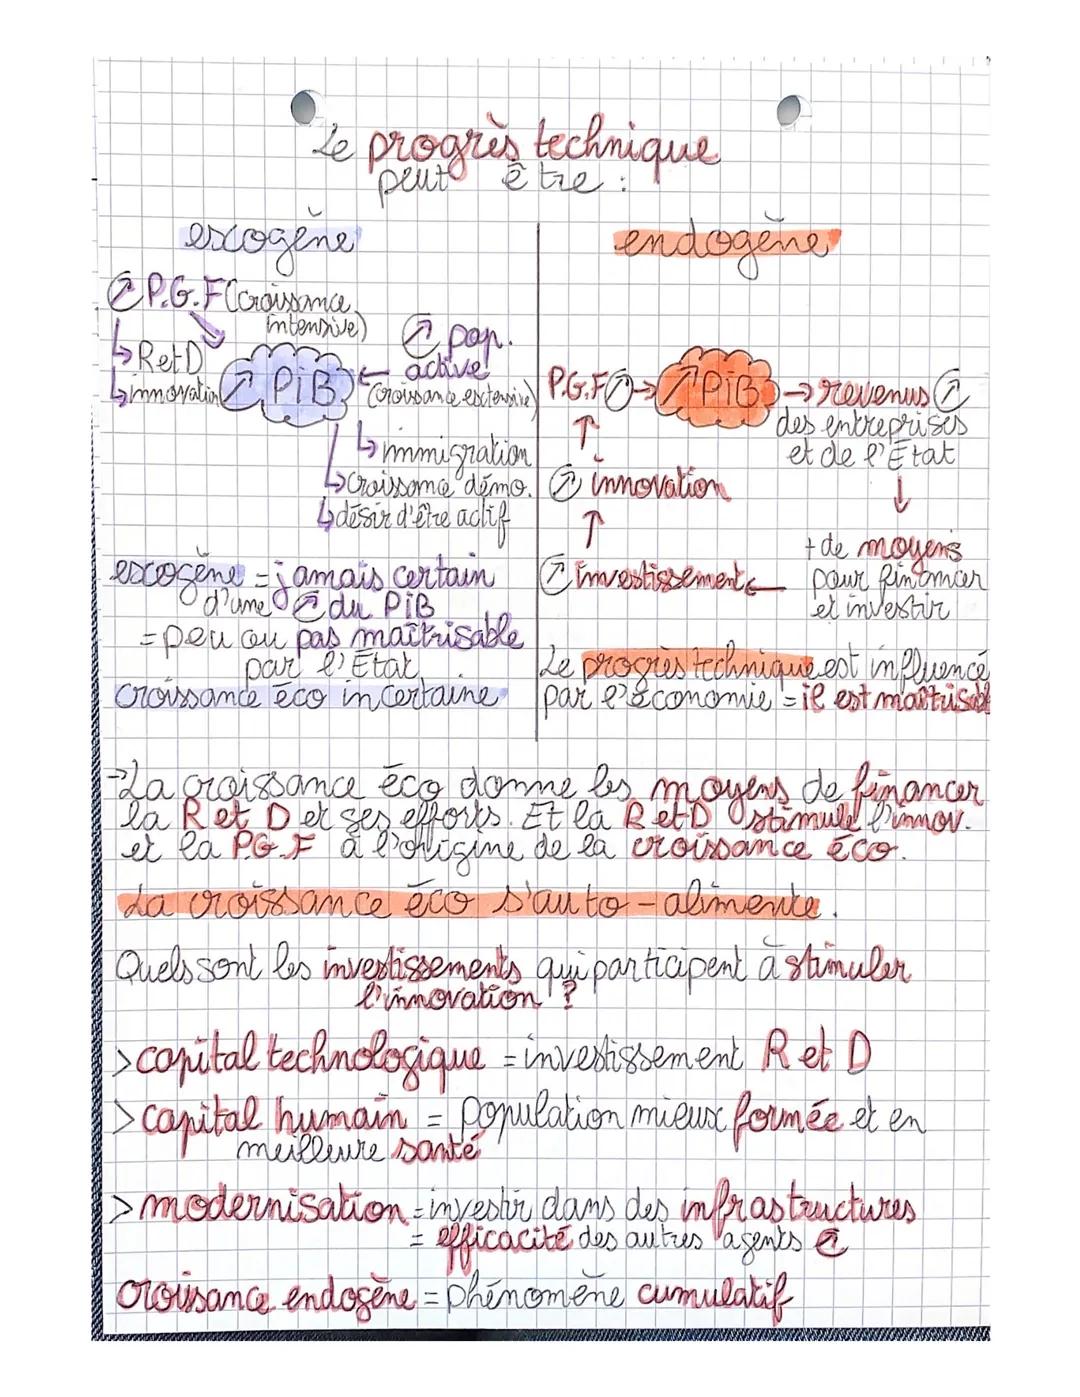 Le progrès technique
peut être :
excogène
↗ P.G.F (croissance
intensive)
↳ R et D
↳ innovation
↗ PiB
↗ pop.
active
(croissance extensive)
↳ immigration
↳ croissance démo.
↳ désir d'être actif
excogène = jamais certain
d'une ↗ du PiB
= peu ou pas maîtrisable
par l'État
croissance éco incertaine
endogène
P.G.F ↗ → ↗ PiB → revenus ↗
des entreprises
et de l'État
↓
+ de moyens
pour financer
et investir
↑
↗ innovation
↑
↗ investissement ←
Le progrès technique est influencé
par l'économie = il est maîtrisabl
→ La croissance éco donne les moyens de financer
la R et D et ses efforts. Et la R et D stimule l'innov.
et la P.G.F à l'origine de la croissance éco.
La croissance éco s'auto-alimente.
Quels sont les investissements qui participent à stimuler
l'innovation ?
> capital technologique = investissement R et D
> capital humain = population mieux formée et en
meilleure santé
> modernisation = investir dans des infrastructures
= efficacité des autres agents ↗
croissance endogène = phénomène cumulatif